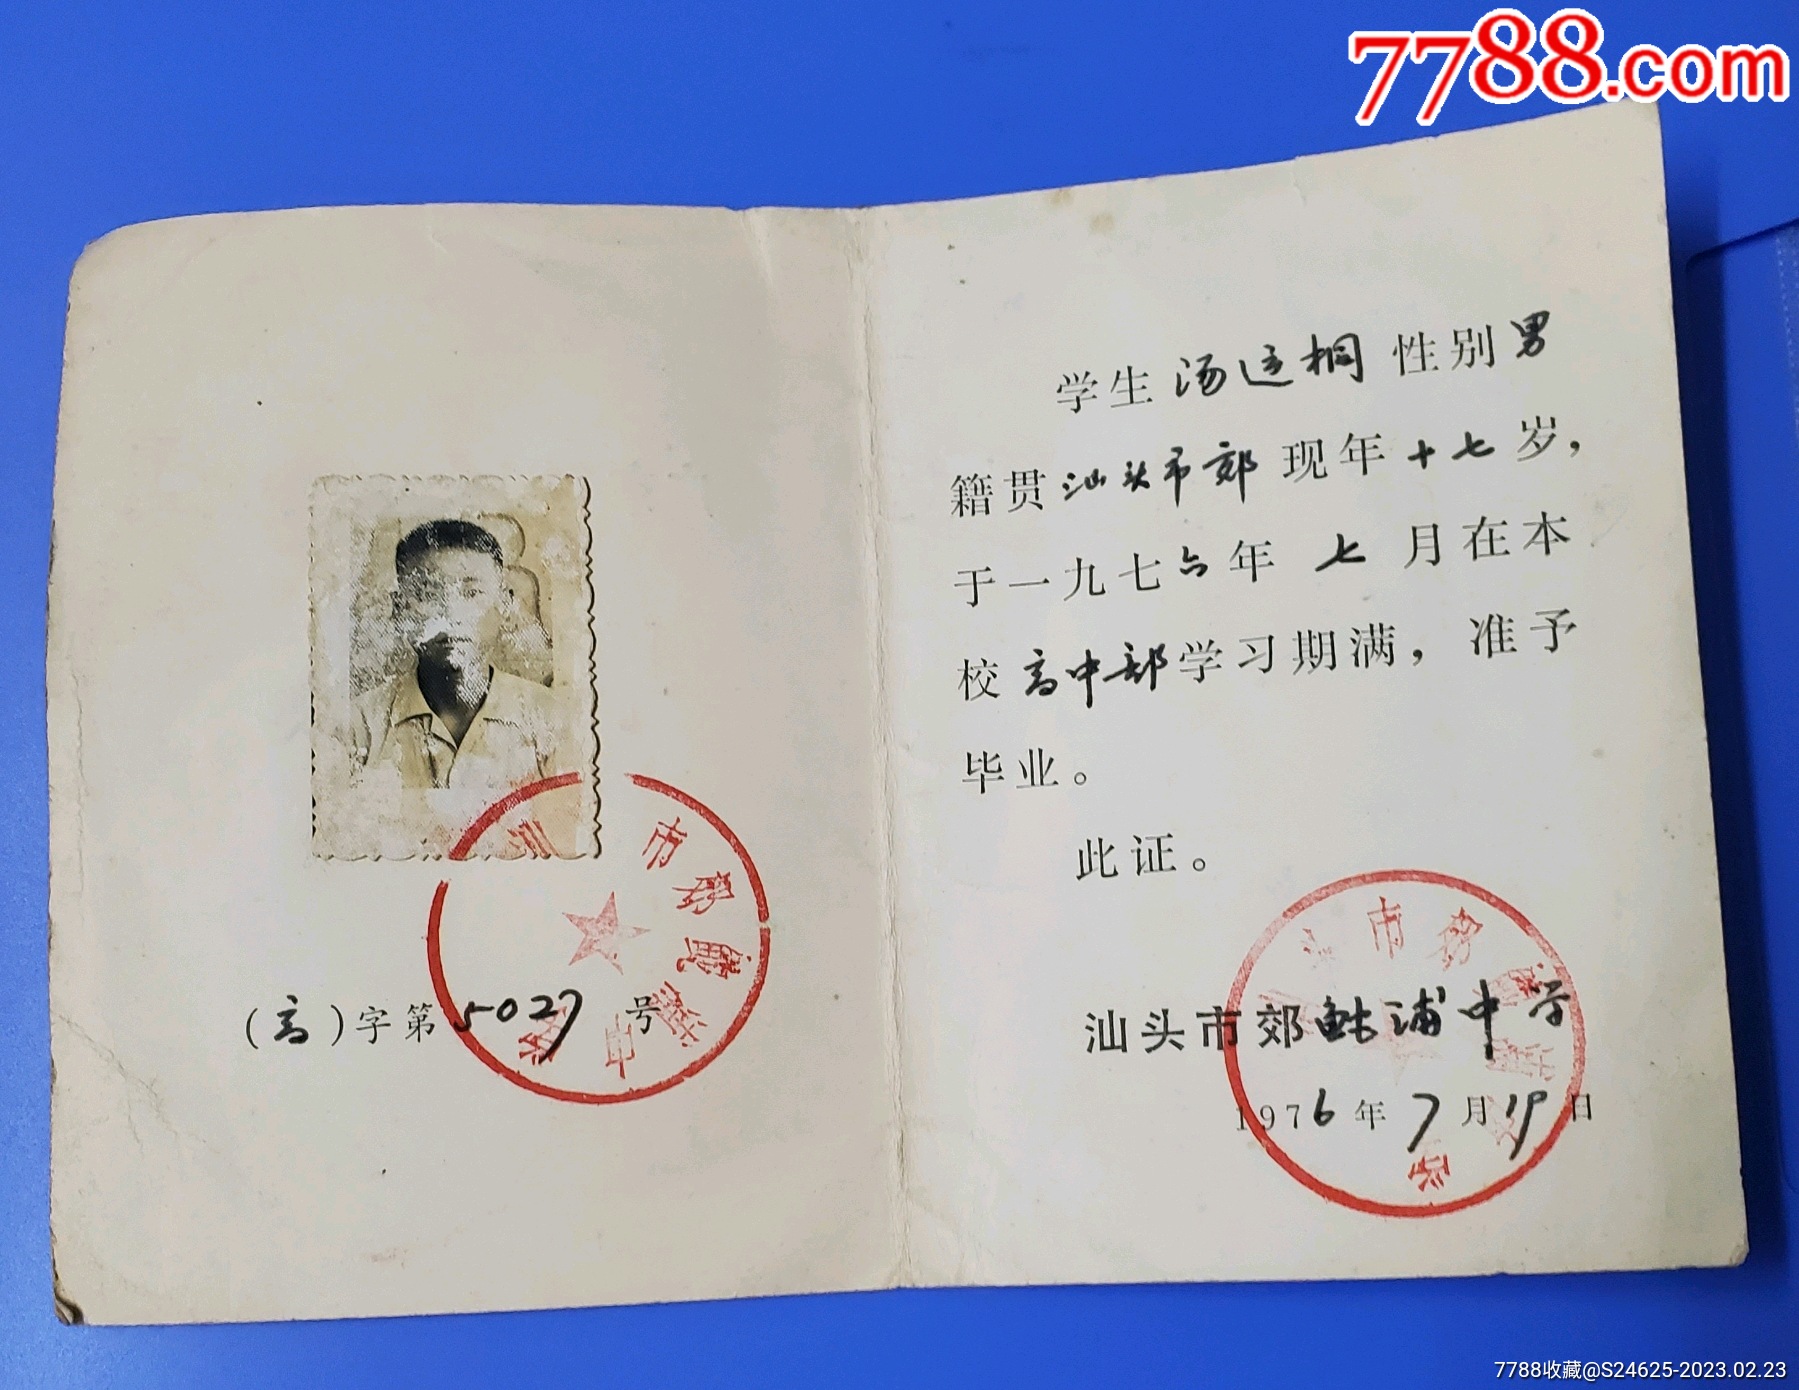 7788.com
学生汤运桐性别男
籍贯汕头市郊现年十七岁，
于一九七六年七月在本
校高中部学习期满，准予
毕业。
此证。
(高)字第5027号
汕头市郊鮀浦中学
1976年7月19日
7788收藏@S24625-2023.02.23